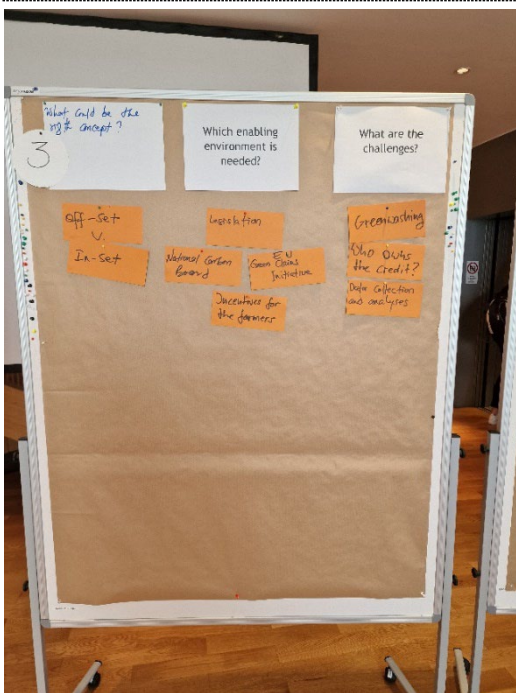 What could be the
right concept?
3
Which enabling
environment is
needed?
What are the
challenges?
Off-set
v.
In-set
Legislation
National Carbon
Board
EU
Green Claims
Initiative
Incentives for
the farmers
Greenwashing
Who owns
the credit?
Data collection
and analyses